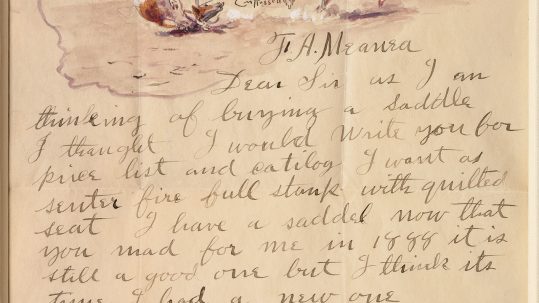 F. A. Meanea
Dear Sir as I am
thinking of buying a saddle
I thaught I would Write you for
price list and catilog I want as
senter fire full stank with quilted
seat I have a saddel now that
you mad for me in 1888 it is
still a good one but I think its
time I had a new one